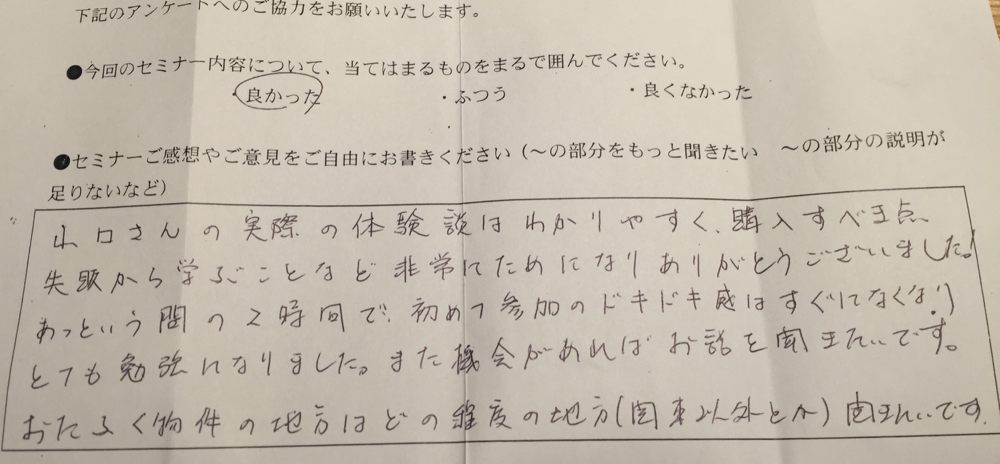 下記のアンケートへのご協力をお願いいたします。
●今回のセミナー内容について、当てはまるものをまるで囲んでください。
・良かった ・ふつう ・良くなかった
●セミナーご感想やご意見をご自由にお書きください（～の部分をもっと聞きたい ～の部分の説明が
足りないなど）
山口さんの実際の体験談はわかりやすく、購入すべき点、
失敗から学ぶことなど非常にためになりありがとうございました!
あっという間の2時間で、初めて参加のドキドキ感はすぐになくなり
とても勉強になりました。また機会があればお話を聞きたいです。
おたふく物件の地方はどの程度の地方(関東以外とか)聞きたいです.